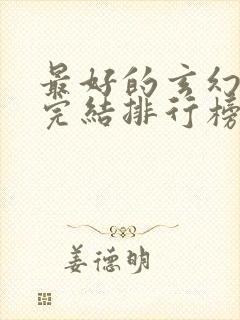 最好的玄幻
完结排行榜
姜德明